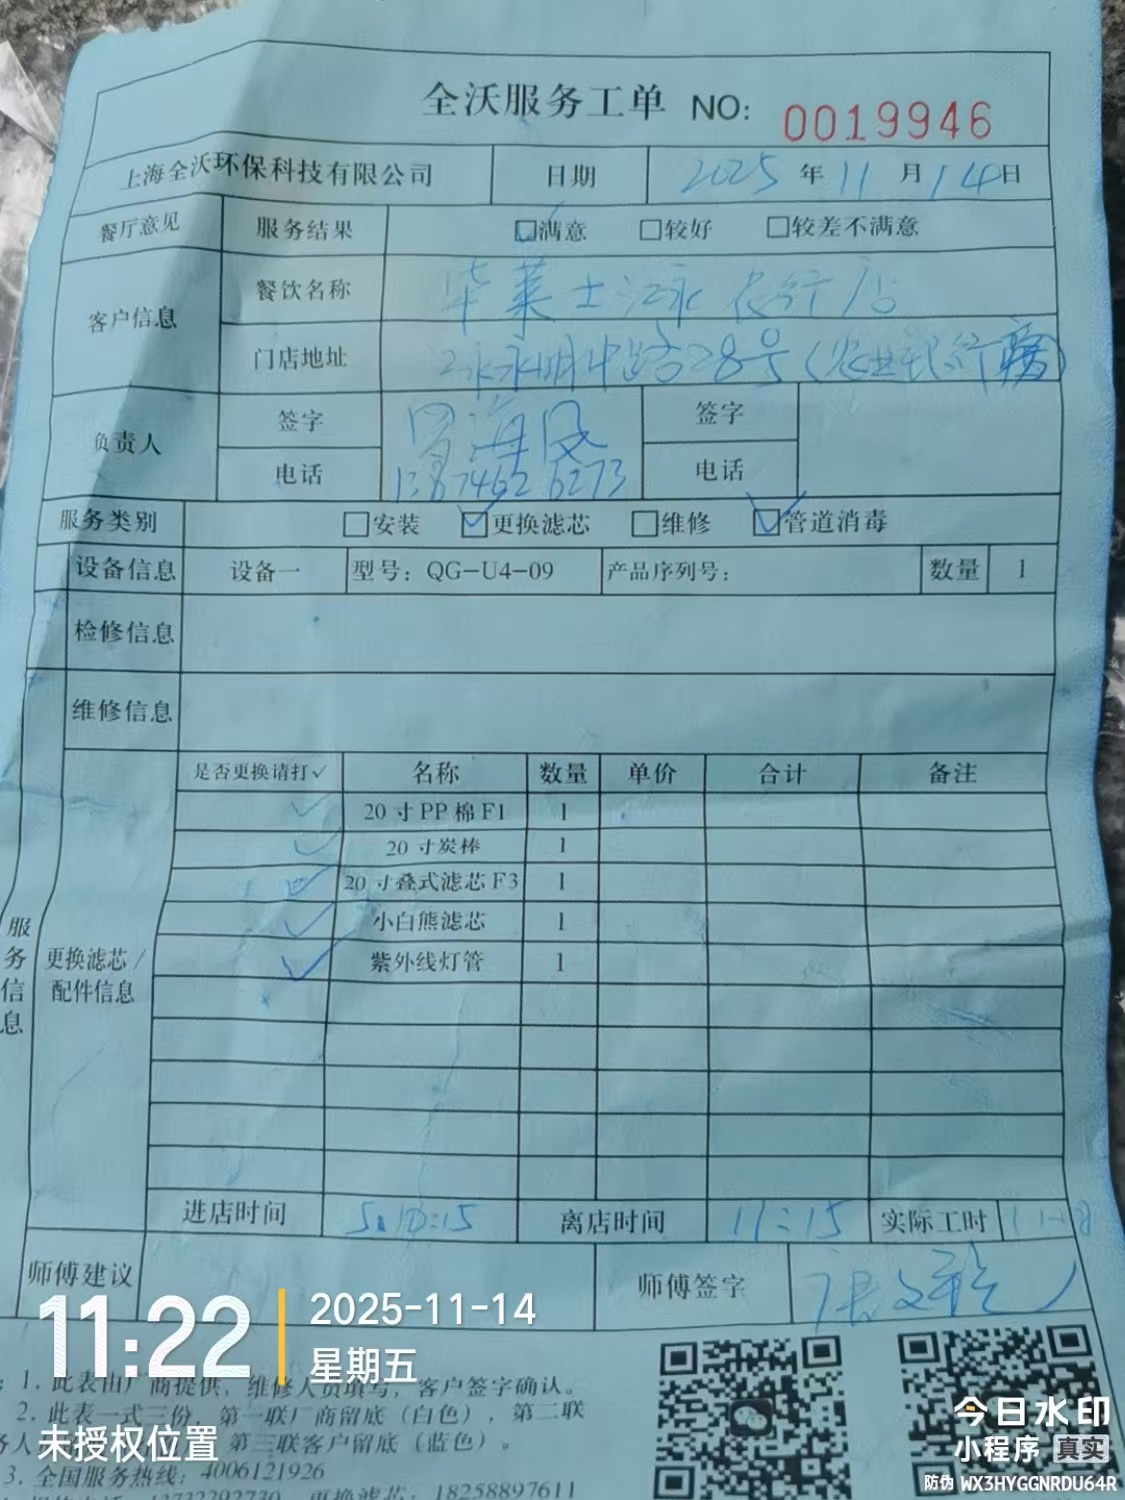 全沃服务工单 NO: 0019946
上海全沃环保科技有限公司 日期 2025 年 11 月 14 日
餐厅意见 服务结果 ☑满意 □较好 □较差不满意
客户信息 餐饮名称 华莱士江永农行店
门店地址 江永永明中路28号(农业银行旁)
负责人 签字 海 签字
电话 13874626273 电话
服务类别 □安装 ☑更换滤芯 □维修 ☑管道消毒
设备信息 设备一 型号: QG-U4-09 产品序列号: 数量 1
检修信息
维修信息
服务信息
更换滤芯/配件信息
是否更换请打✓ 名称 数量 单价 合计 备注
✓ 20寸PP棉F1 1
✓ 20寸炭棒 1
✓ 20寸叠式滤芯F3 1
✓ 小白熊滤芯 1
✓ 紫外线灯管 1
进店时间 10:15 离店时间 11:15 实际工时
师傅建议 师傅签字 张文
11:22 2025-11-14
星期五
未授权位置
: 1. 此表由厂商提供, 维修人员填写, 客户签字确认。
2. 此表一式三份, 第一联厂商留底(白色), 第二联
第三联客户留底(蓝色)。
3. 全国服务热线: 4006121926
13732292730 更换滤芯: 18258897611
今日水印
小程序 真实
防伪 WX3HYGGNRDU64R